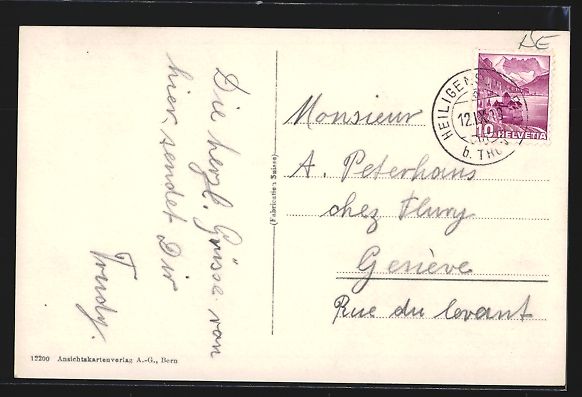 Die herzl. Grüsse von
hier, sendet Dir
Trudy.
(Fabrication Suisse)
Monsieur
A. Peterhans
chez Flury
Genève
Rue du levant
10 HELVETIA
12.IX.
b. THUN
12200 Ansichtskartenverlag A.-G., Bern